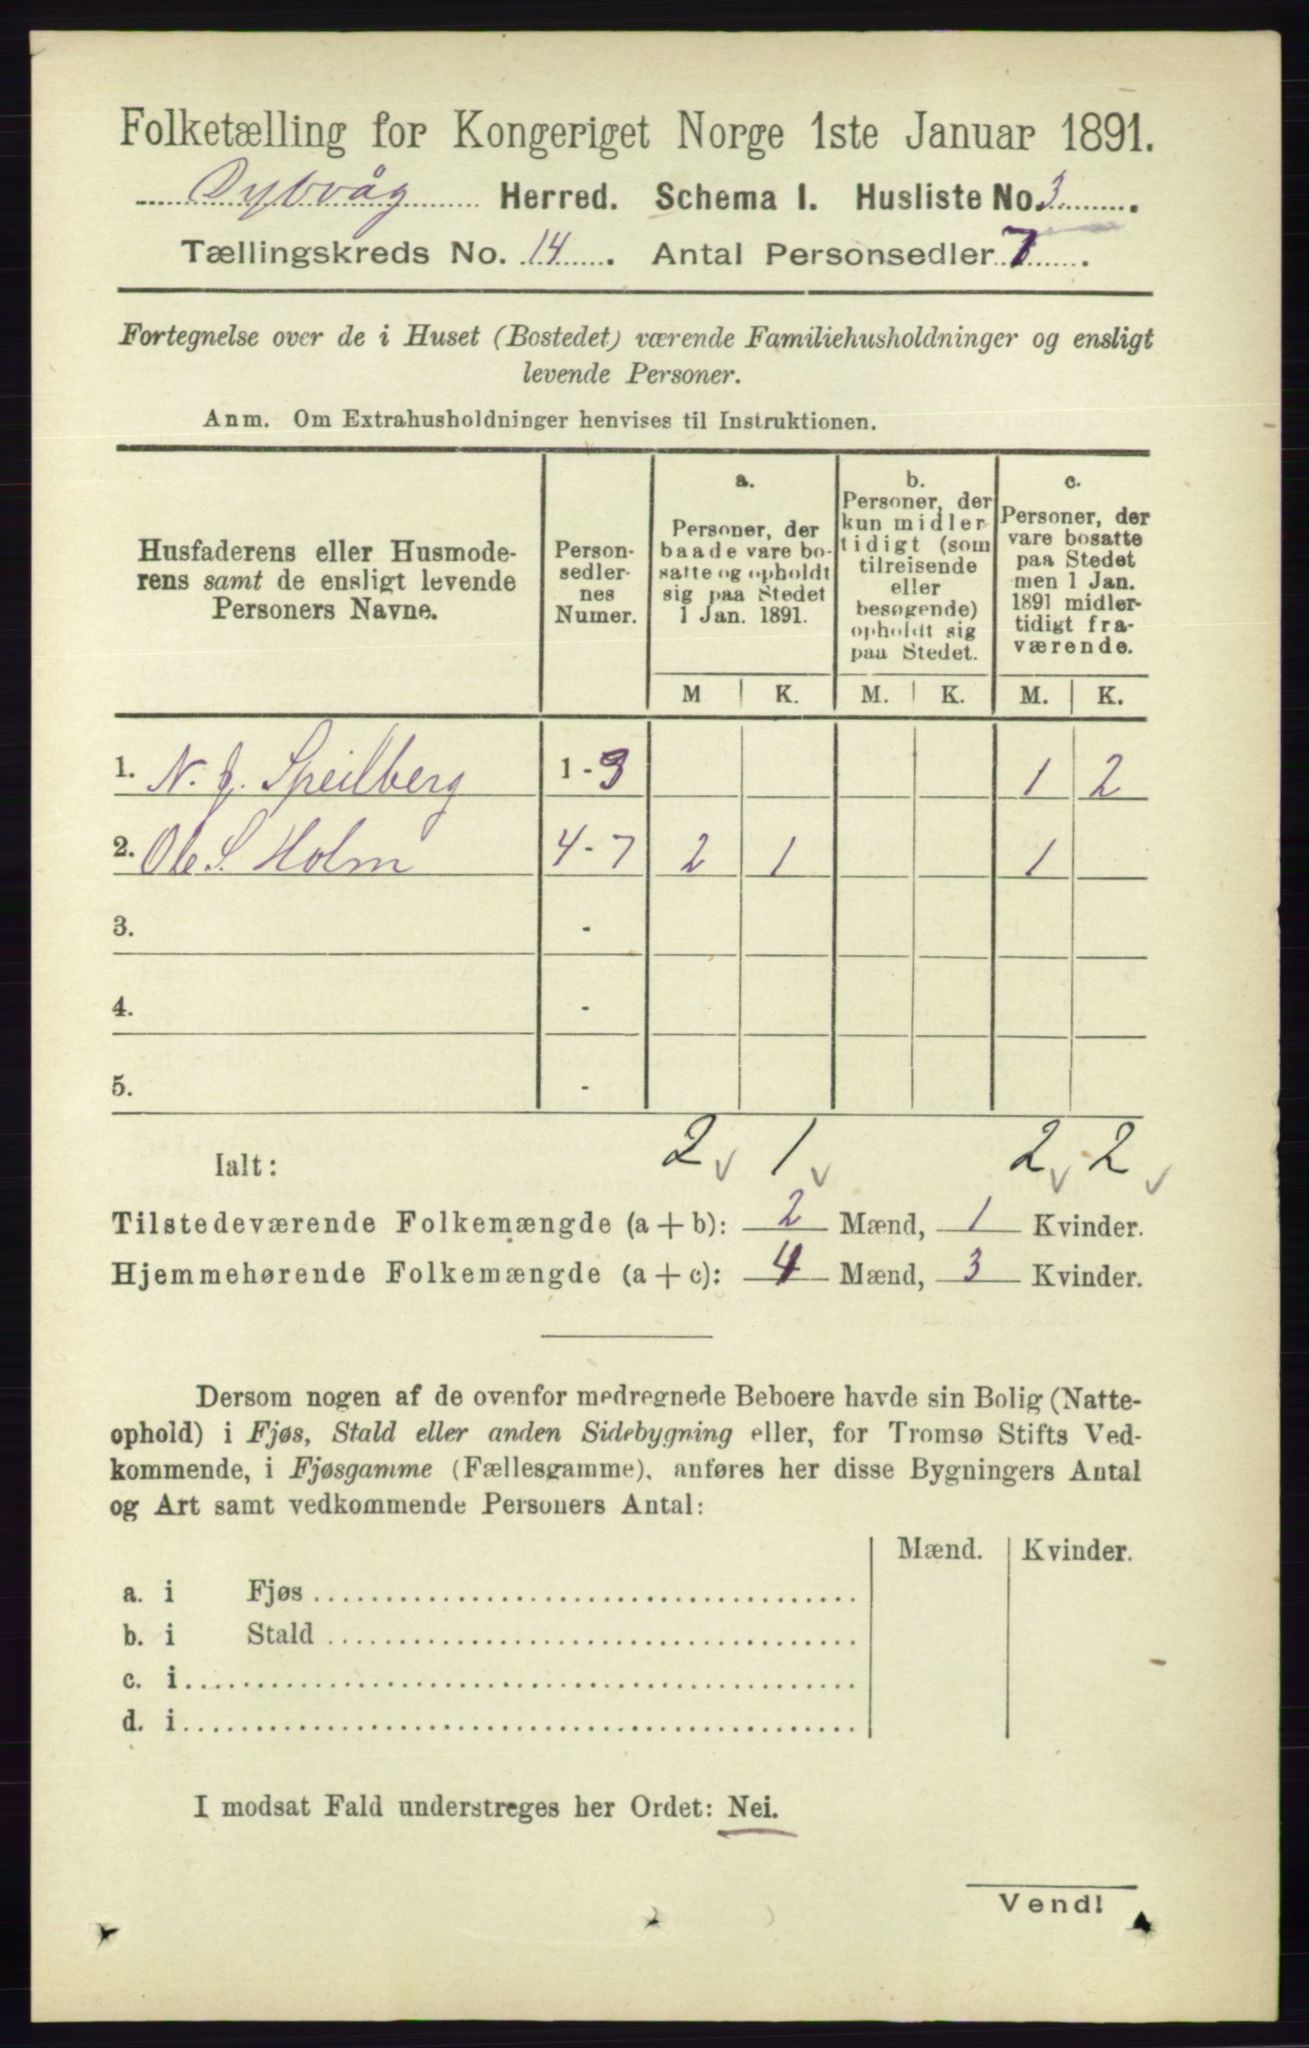 Folketælling for Kongeriget Norge 1ste Januar 1891.
Dybvåg Herred. Schema I. Husliste No. 3.
Tællingskreds No. 14. Antal Personsedler 7.
Fortegnelse over de i Huset (Bostedet) værende Familiehusholdninger og ensligt
levende Personer.
Anm. Om Extrahusholdninger henvises til Instruktionen.
Husfaderens eller Husmode-
rens samt de ensligt levende
Personers Navne.
Person-
sedler-
nes
Numer.
a.
Personer, der
baade vare bo-
satte og opholdt
sig paa Stedet
1 Jan. 1891.
b.
Personer, der
kun midler
tidigt (som
tilreisende
eller
besøgende)
opholdt sig
paa Stedet.
c.
Personer, der
vare bosatte
paa Stedet
men 1 Jan.
1891 midler-
tidigt fra-
værende.
M K. M. K. M. K.
1. N. J. Speilberg 1 - 3 1 2
2. Ole S. Holm 4 - 7 2 1 1
3. -
4. -
5. -
Ialt: 2 1 2 2
Tilstedeværende Folkemængde (a + b): 2 Mænd, 1 Kvinder.
Hjemmehørende Folkemængde (a + c): 4 Mænd, 3 Kvinder.
Dersom nogen af de ovenfor medregnede Beboere havde sin Bolig (Natte-
ophold) i Fjøs, Stald eller anden Sidebygning eller, for Tromsø Stifts Ved-
kommende, i Fjøsgamme (Fællesgamme), anføres her disse Bygningers Antal
og Art samt vedkommende Personers Antal:
Mænd. Kvinder.
a. i Fjøs
b. i Stald
c. i
d. i
I modsat Fald understreges her Ordet: Nei.
Vend!